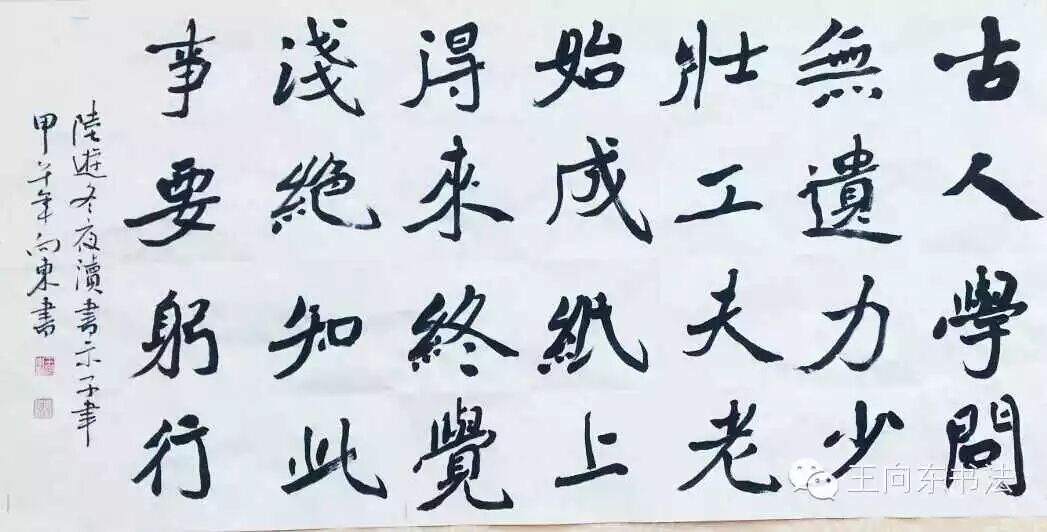 古人學問
無遺力少
壯工夫老
始成紙上
得來終覺
淺絕知此
事要躬行
陸遊冬夜讀書示子聿
甲午年向東書
王向东书法